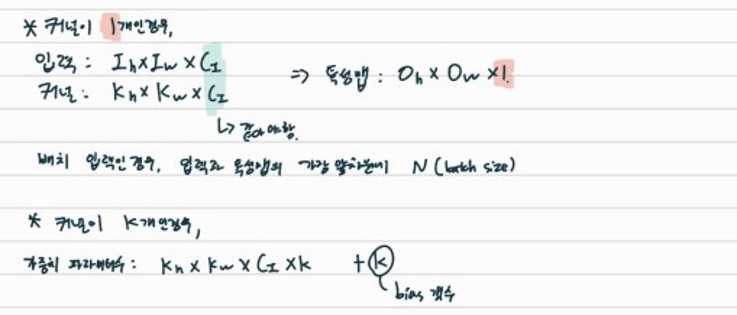 * 커널이 1개인경우,
입력 : Ih×Iw×CI ⇒ 특성맵 : Oh × Ow ×1.
커널 : Kh × Kw × CI
↳ 같아야함.
배치 입력인경우, 입력과 특성맵의 가장 앞차원에 N (batch size)
* 커널이 K개인경우,
가중치 파라미터수 : Kh × Kw × CI ×k + k
bias 갯수